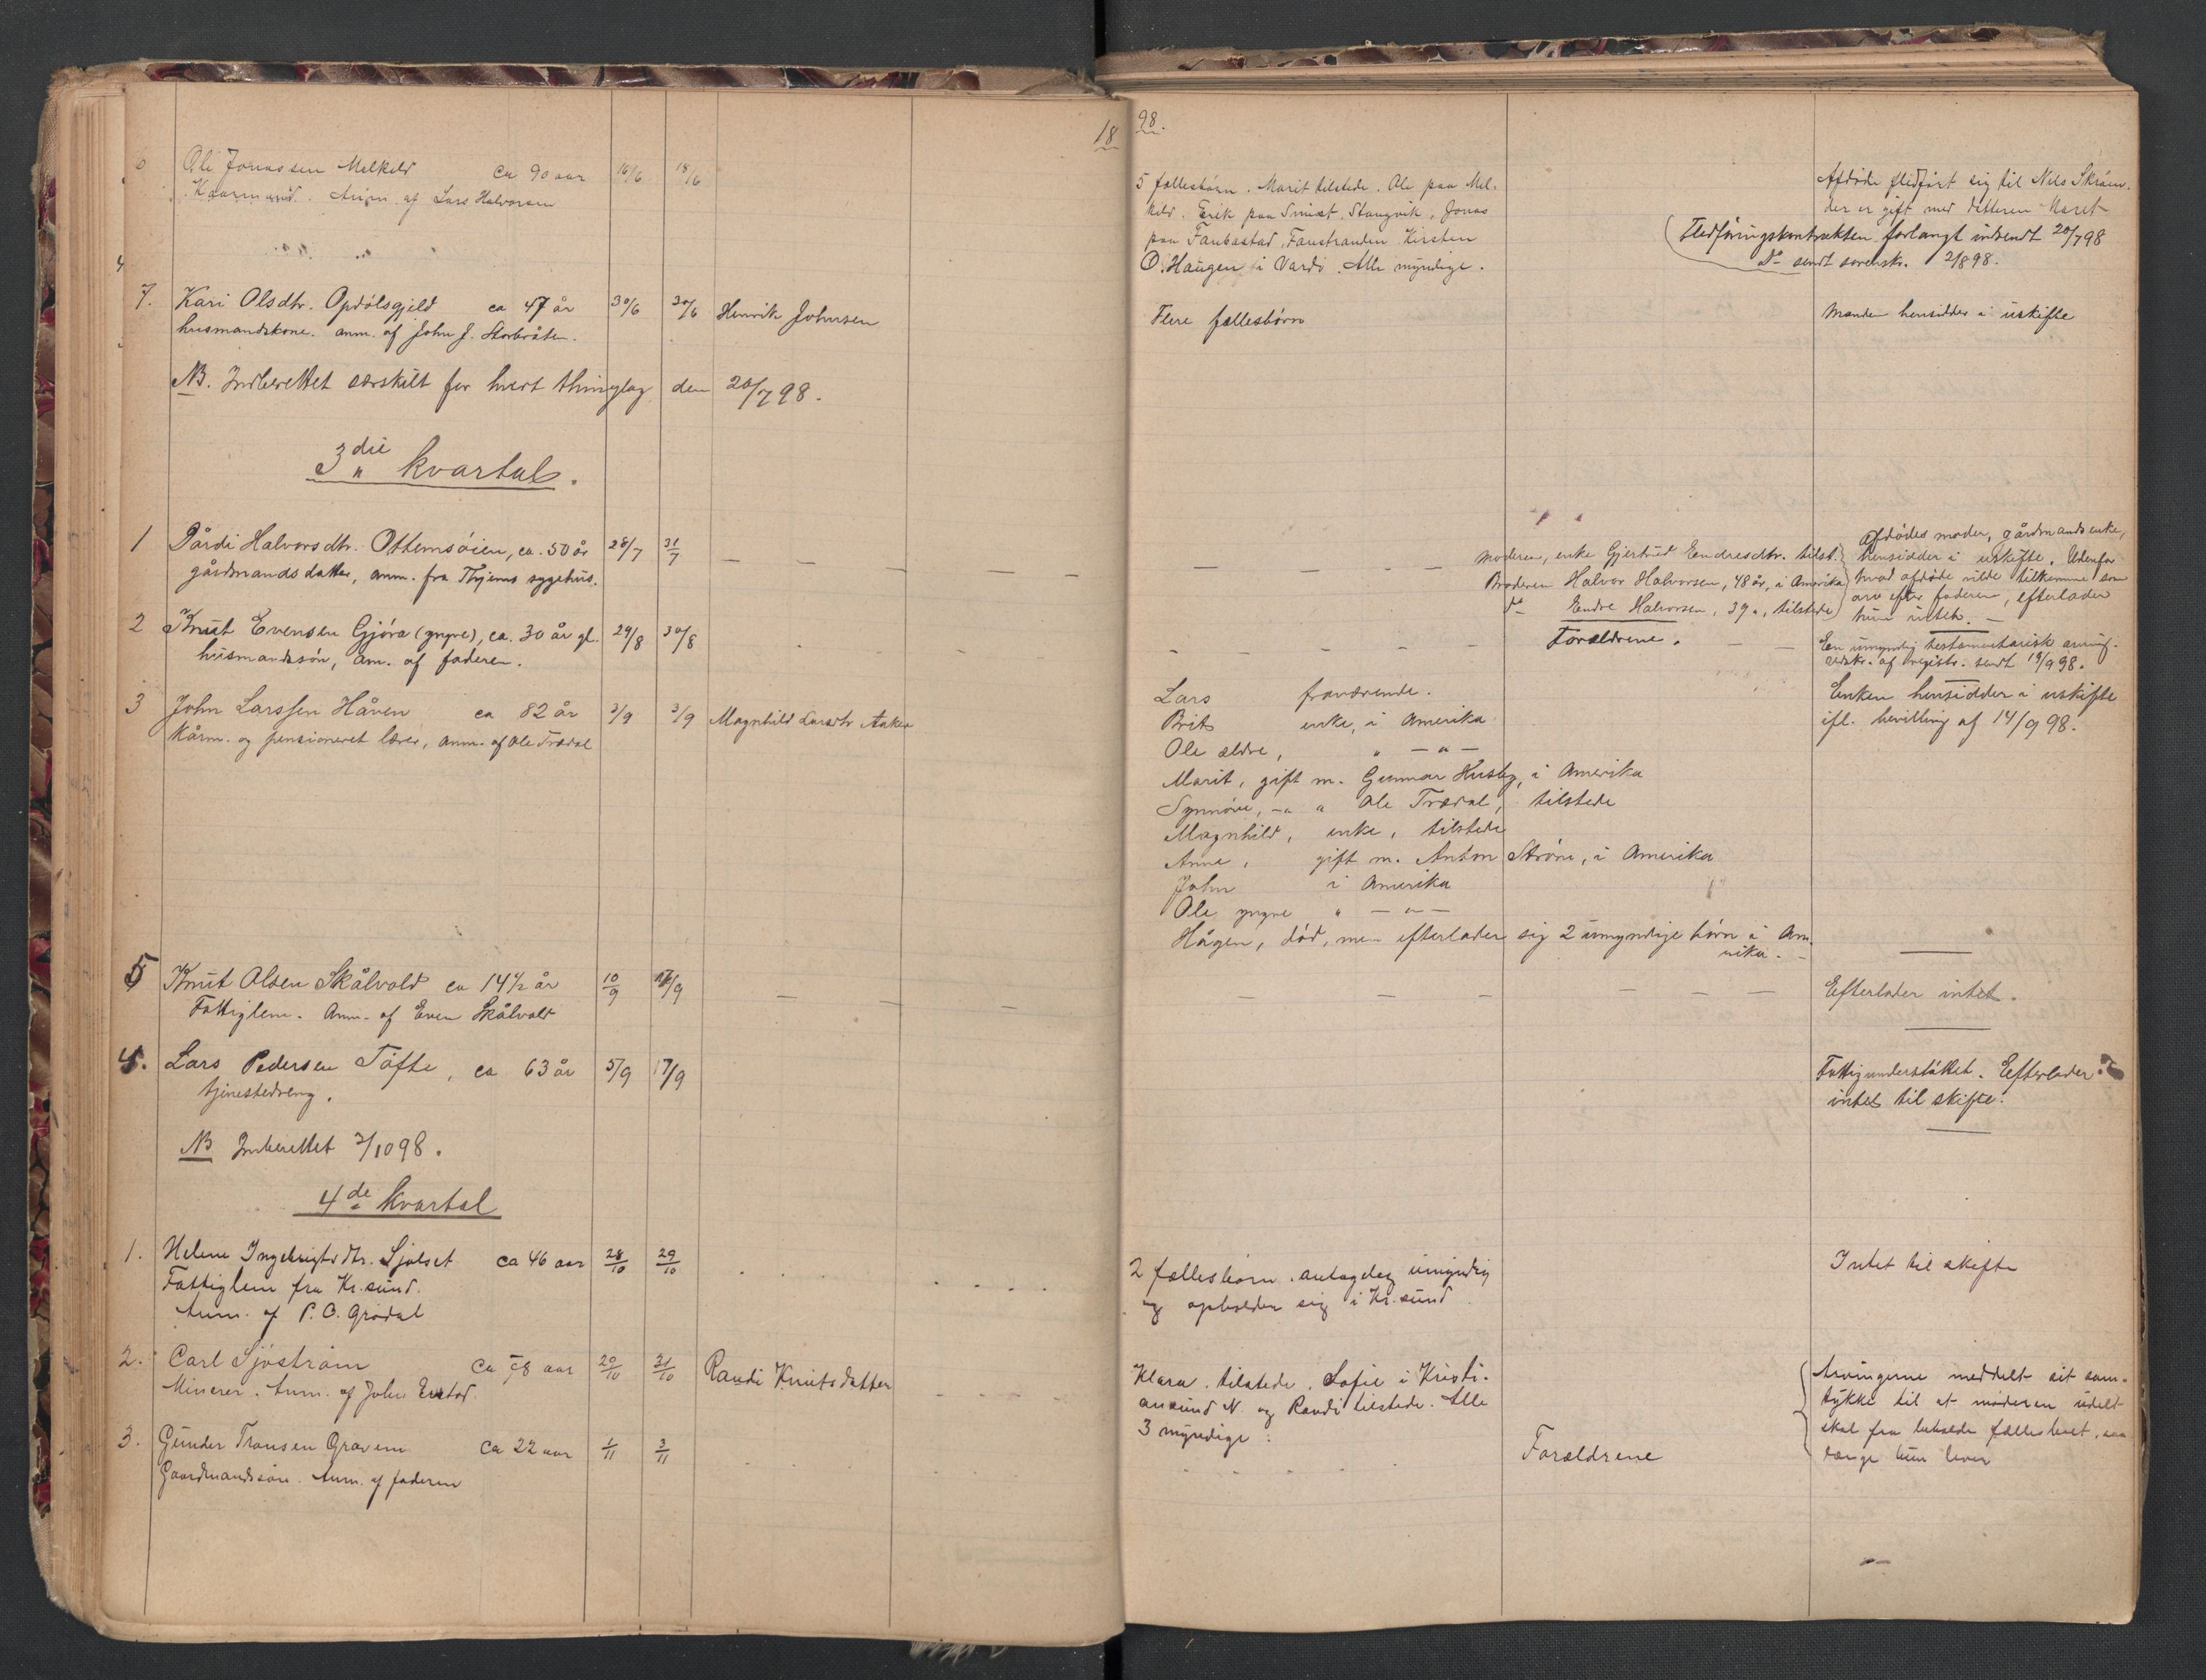 18
98.
6 Ole Jonassen Melkild ca 90 aar 16/6 18/6
Kaarmand. Anm. af Lars Halvorsen
5 fællesbørn. Marit tilstede. Ole paa Mel-
kild. Erik paa Stangvik, Jonas
paa Fanbostad, Fanstranden Kirsten
O. Haugen i Vardø. Alle myndige.
Afdøde flidført sig til Nils
der er gift med datteren Maret
Flidføringskontrakten forlangt indsendt 20/7 98
do sendt sorenskr. 2/8 98.
7. Kari Olsdtr. Opdølsgjeld ca 47 år 30/6 30/6 Henrik Johnsen
husmandskone. anm. af John J. Storbråten.
Flere fællesbørn
Manden hensidder i uskifte
NB. Indberettet særskilt for hvert thinglag den 20/7 98.
3die kvartal.
1 Pårdi Halvorsdtr. Ottemsøien, ca. 50 år 28/7 31/7 — — — — —
gårdmandsdatter, anm. fra Thjems sygehus.
Moderen, enke Gjertrud Endresdtr. tilst.
Broderen Halvor Halvorsen, 48 år, i Amerika
do Endre Halvorsen, 39 „, tilstede
Afdødes moder, gårdmandsenke,
hensidder i uskifte. Udenfor
hvad afdøde vilde tilkomme som
arv efter faderen, efterlader
hun intet. —
2 Knut Evensen Gjøra (yngre), ca. 30 år gl. 29/8 30/8
husmandssøn, am. af faderen.
Forældrene.
En umyndig testamentarisk arving.
udskr. af registr. sendt 19/9 98.
3 John Larssen Håven ca 82 år 3/9 3/9 Magnhild Larsdtr Aaker
kårm. og pensioneret lærer, anm. af Ole Trædal
Lars fraværende.
Brit enke, i Amerika
Ole ældre, „ — „ —
Marit, gift m. Gunnar Husby, i Amerika
Synnøve, — „ „ Ole Trædal, tilstede
Magnhild, enke, tilstede
Anna, gift m. Anton Strøm, i Amerika
John i Amerika
Ole yngre „ — „ —
Hågen, død, men efterlader sig 2 umyndige børn i Am-
erika. —
Enken hensidder i uskifte
ifl. bevilling af 14/9 98.
5 Knut Olsen Skålvold ca 14½ år 10/9 17/9 — — —
Fattiglem. Anm. af Even Skålvold
Efterlader intet.
4. Lars Pedersen Tøfte, ca 63 år 5/9 17/9
tjenestedreng.
Fattigunderstøttet. Efterlader
intet til skifte.
NB Indberettet 3/10 98.
4de kvartal
1. Helene Ingebrigtsdtr. Sjølset ca 46 aar 28/10 29/10
Fattiglem fra Kr.sund.
Anm. af P. O. Grødal
2 fællesbørn. antagelig umyndig
og opholder sig i Kr.sund
Intet til skifte
2. Carl Sjöström ca 58 aar 29/10 31/10 Randi Knutsdatter
Minerer. Anm. af John
Klara tilstede. Sofie i Kristi-
ansund N. og Randi tilstede. Alle
3 myndige.
Arvingerne meddelt sit sam-
tykke til at moderen udelt
skal faa beholde fællesboet, saa
længe hun lever
3. Gunder Tronsen Gravem ca 22 aar 1/11 3/11
Gaardmandssøn. Anm. af faderen
Forældrene